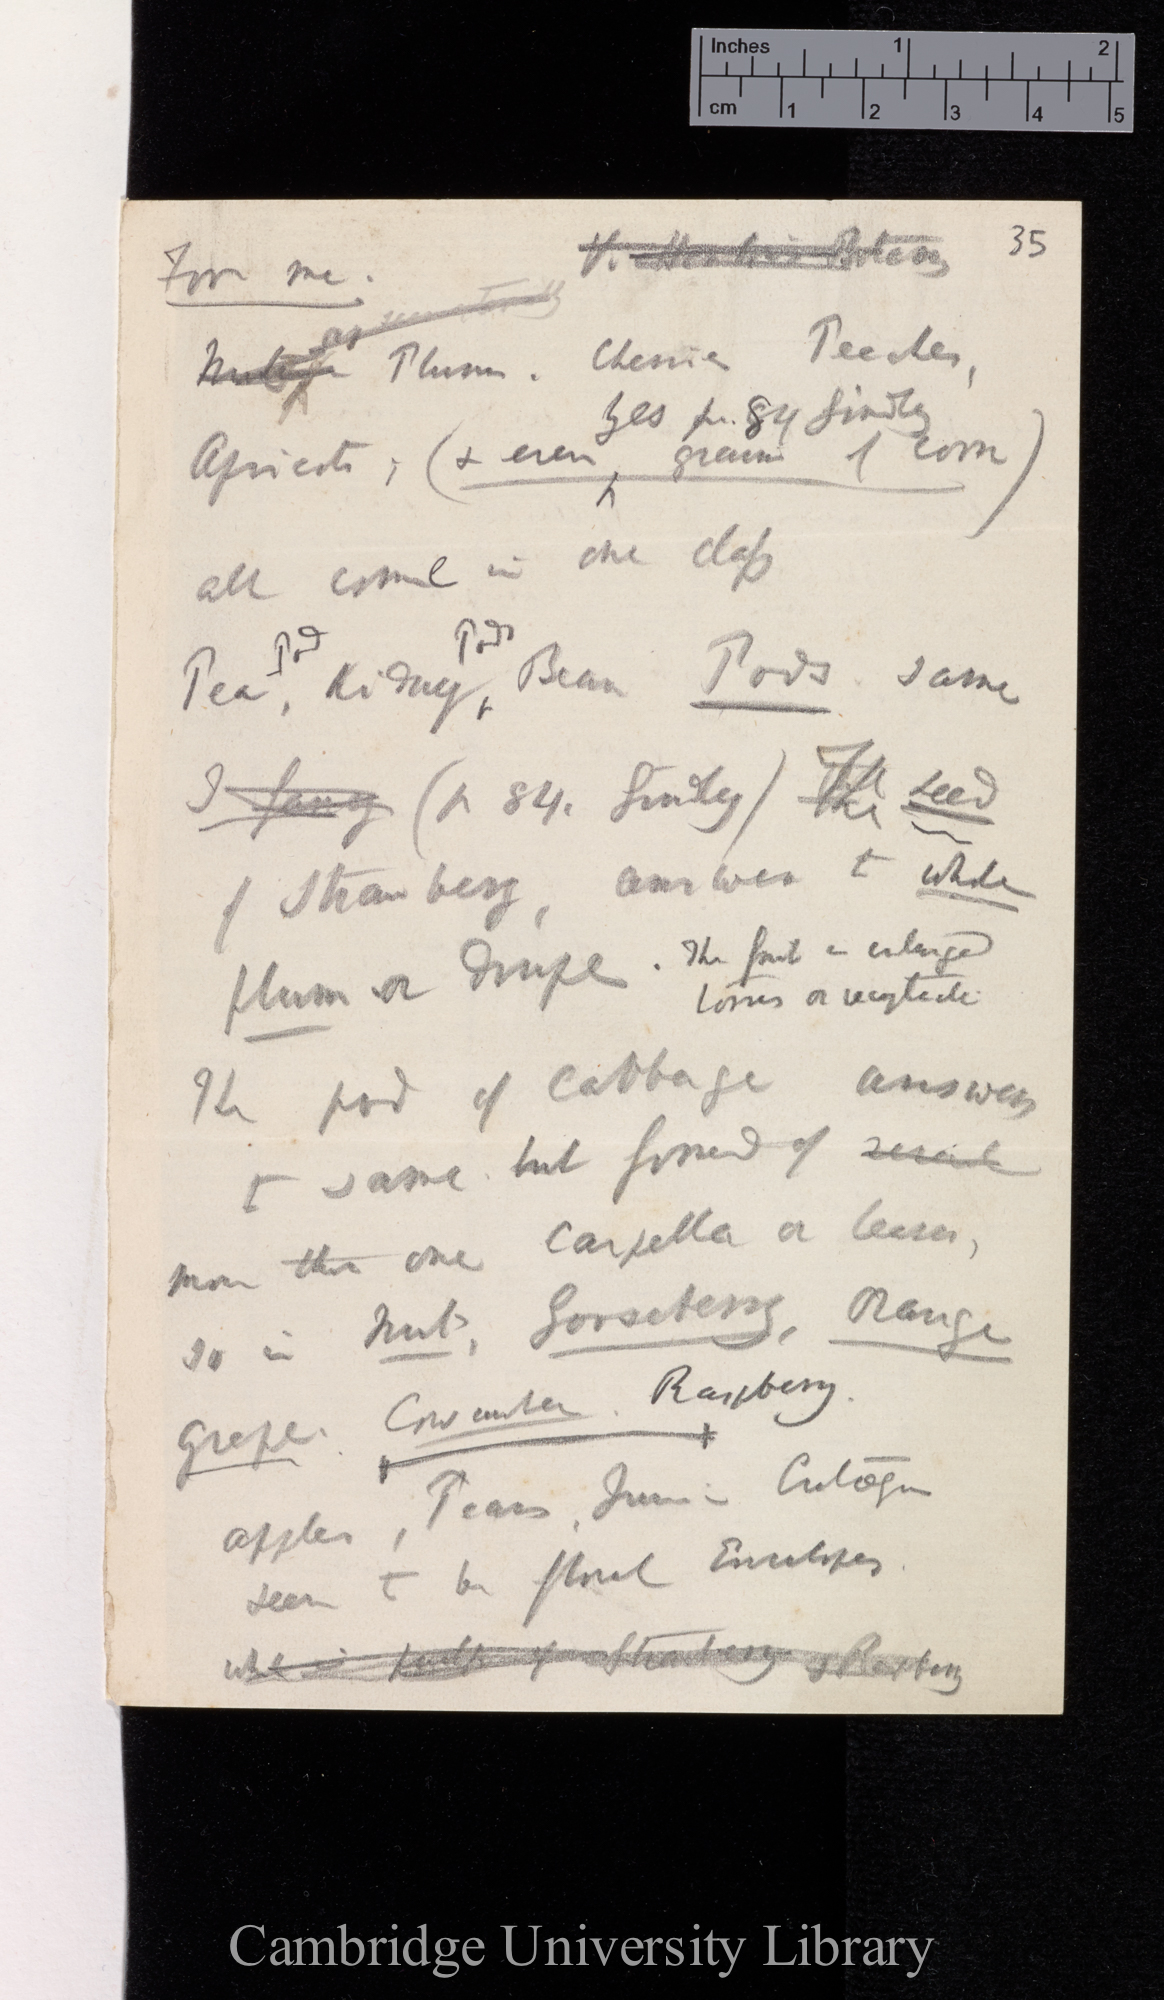 Inches 1 2
cm 1 2 3 4 5
35
V. Henslow's Botany
For me.
Plums. Cherries Peaches,
yes p. 84 Lindley
Apricots, (& even grains of corn)
all come in one class
Pod Pods
Pea, Kidney, Bean Pods same
I fancy (p 84. Lindley) The seed
of Strawberry, answers to whole
plum or drupe. The fruit is enlarged
torus or receptacle
The pod of cabbage answers
to same but formed of
more than one carpella or leaves,
so in Nut, Gooseberry, Orange
grape. Cowcumber. Raspberry.
apples, Pears, Cratægus
seem to be floral Envelopes.
what is pulp of Strawberry & Raspberry
Cambridge University Library